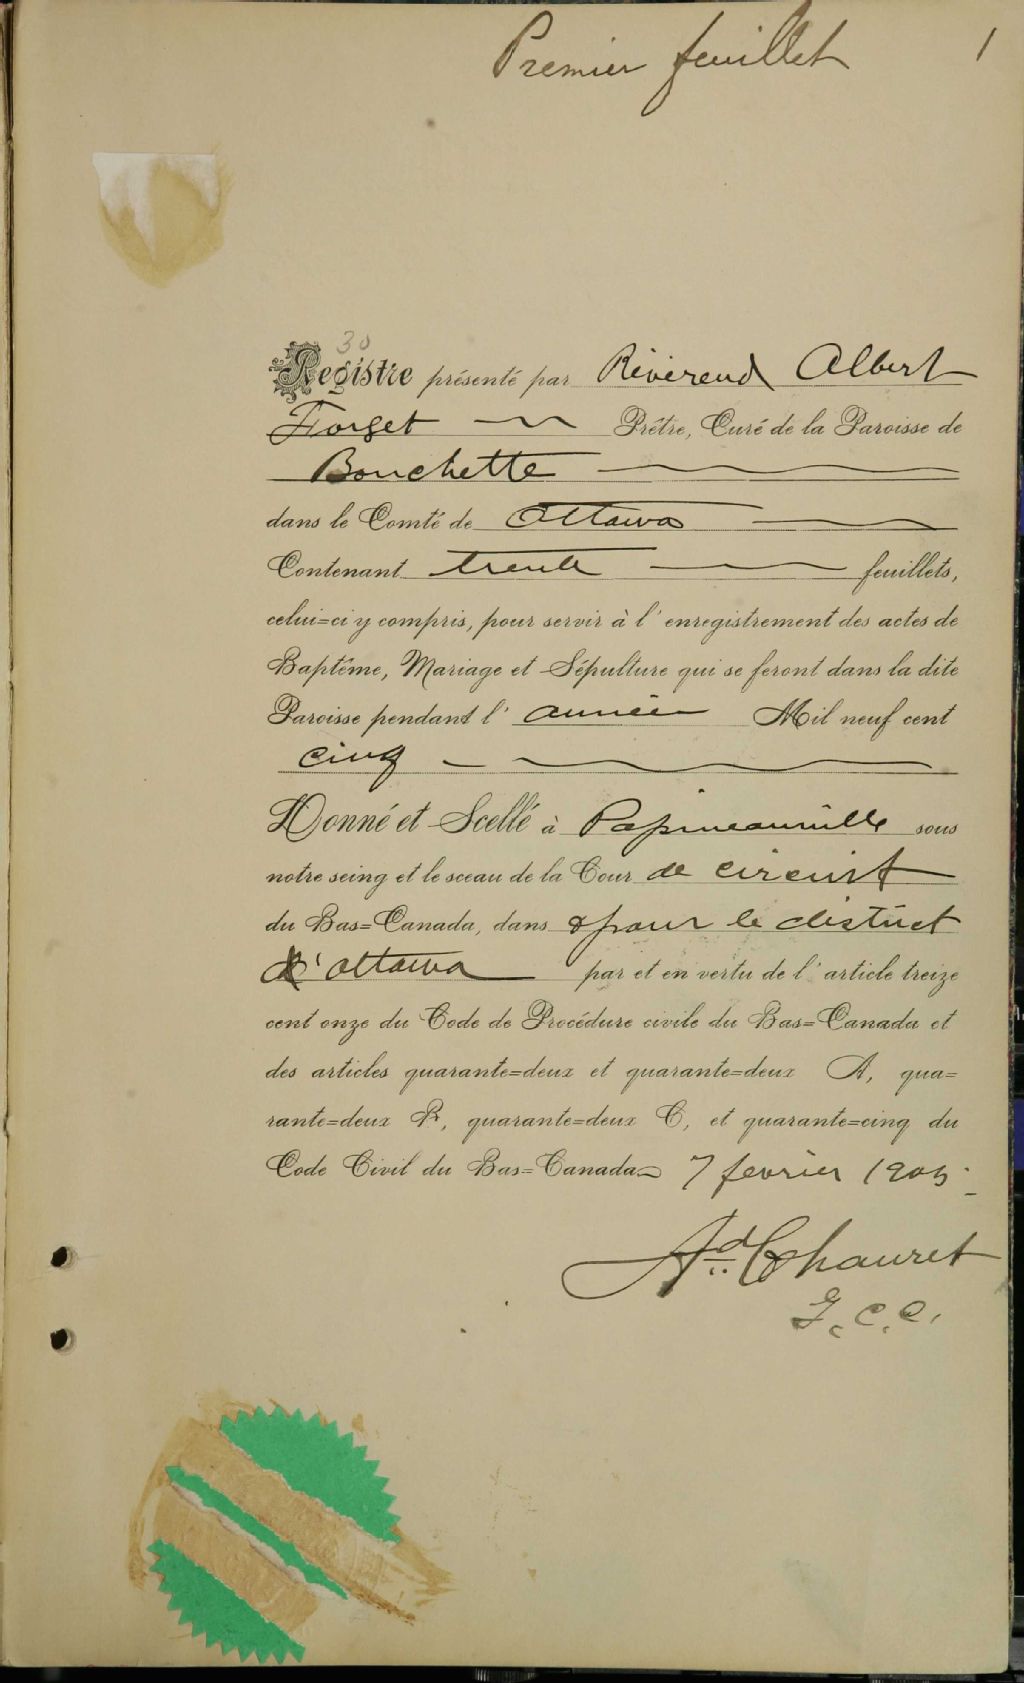 Premier feuillet 1
30
Registre présenté par Révérend Albert
Forget Prêtre, Curé de la Paroisse de
Bouchette
dans le Comté de Ottawa
Contenant trente feuillets,
celui=ci y compris, pour servir à l'enregistrement des actes de
Baptême, Mariage et Sépulture qui se feront dans la dite
Paroisse pendant l'année Mil neuf cent
cinq
Donné et Scellé à Papineauville sous
notre seing et le sceau de la Cour de circuit
du Bas=Canada, dans & pour le district
d'Ottawa par et en vertu de l'article treize
cent onze du Code de Procédure civile du Bas=Canada et
des articles quarante=deux et quarante=deux A, qua=
rante=deux B, quarante=deux C, et quarante=cinq du
Code Civil du Bas=Canada 7 fevrier 1905
Ad Chauret
G.C.C.